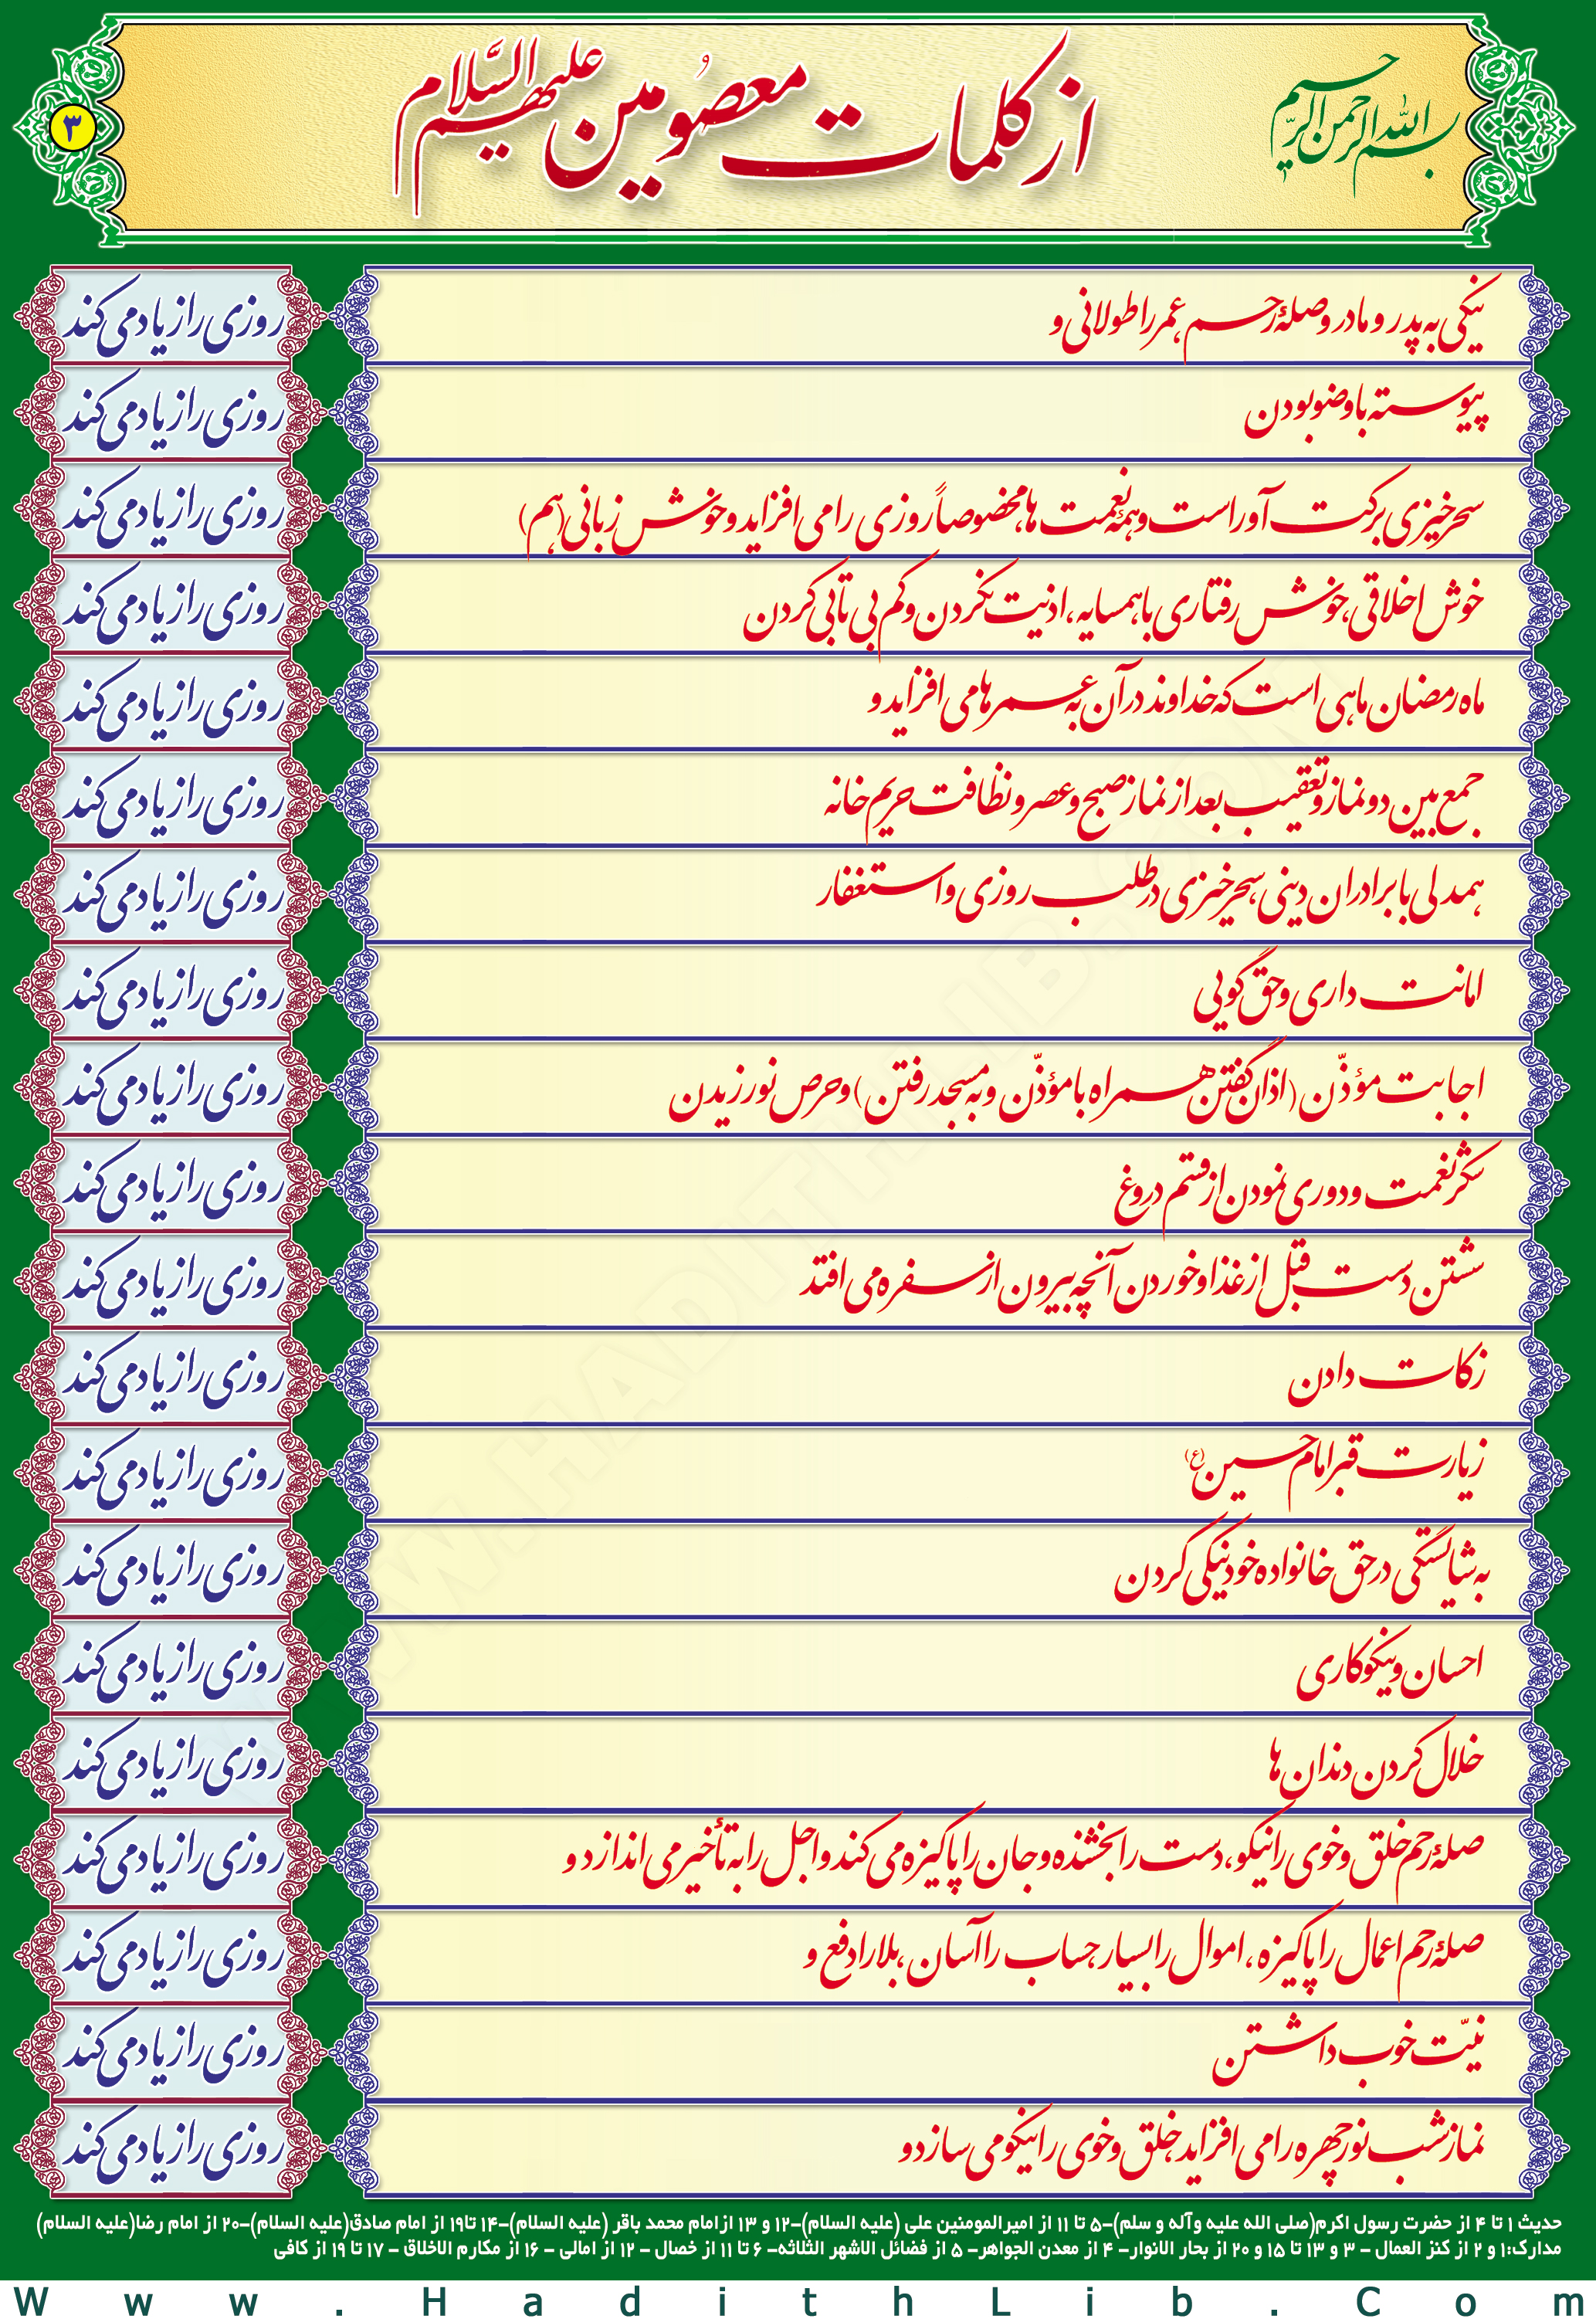 بسم الله الرحمن الرحیم
از کلمات معصومین علیهم السّلام
۳
نیکی به پدر و مادر و صلۀ رحم عمر را طولانی و روزی را زیاد می کند
پیوسته با وضو بودن روزی را زیاد می کند
سحرخیزی برکت آور است و همۀ نعمت ها، مخصوصاً روزی را می افزاید و خوش زبانی (هم) روزی را زیاد می کند
خوش اخلاقی، خوش رفتاری با همسایه، اذیت نکردن و کم بی تابی کردن روزی را زیاد می کند
ماه رمضان ماهی است که خداوند در آن به عمرها می افزاید و روزی را زیاد می کند
جمع بین دو نماز و تعقیب بعد از نماز صبح و عصر و نظافت حریم خانه روزی را زیاد می کند
همدلی با برادران دینی، سحرخیزی در طلب روزی و استغفار روزی را زیاد می کند
امانت داری و حق گویی روزی را زیاد می کند
اجابت مؤذّن (اذان گفتن همراه با مؤذّن و به مسجد رفتن) و حرص نورزیدن روزی را زیاد می کند
شکر نعمت و دوری نمودن از قسم دروغ روزی را زیاد می کند
شستن دست قبل از غذا و خوردن آنچه بیرون از سفره می افتد روزی را زیاد می کند
زکات دادن روزی را زیاد می کند
زیارت قبر امام حسین (ع) روزی را زیاد می کند
به شایستگی در حق خانواده خود نیکی کردن روزی را زیاد می کند
احسان و نیکوکاری روزی را زیاد می کند
خلال کردن دندان ها روزی را زیاد می کند
صلۀ رحم خلق و خوی را نیکو، دست را بخشنده و جان را پاکیزه می کند و اجل را به تأخیر می اندازد و روزی را زیاد می کند
صلۀ رحم اعمال را پاکیزه، اموال را بسیار، حساب را آسان، بلا را دفع و روزی را زیاد می کند
نیّت خوب داشتن روزی را زیاد می کند
نماز شب نور چهره را می افزاید، خلق و خوی را نیکو می سازد و روزی را زیاد می کند
حدیث ۱ تا ۴ از حضرت رسول اکرم(صلی الله علیه وآله و سلم)-۵ تا ۱۱ از امیرالمومنین علی (علیه السلام)-۱۲ و ۱۳ ازامام محمد باقر (علیه السلام)-۱۴ تا۱۹ از امام صادق(علیه السلام)-۲۰ از امام رضا(علیه السلام)
مدارک:۱ و ۲ از کنز العمال - ۳ و ۱۳ تا ۱۵ و ۲۰ از بحار الانوار- ۴ از معدن الجواهر- ۵ از فضائل الاشهر الثلاثه- ۶ تا ۱۱ از خصال - ۱۲ از امالی - ۱۶ از مکارم الاخلاق - ۱۷ تا ۱۹ از کافی
Www.HadithLib.Com
WWW.HADITHLIB.COM